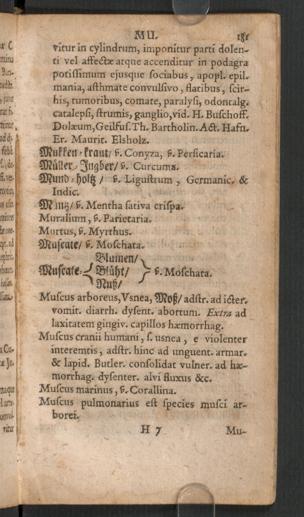 MU. 181
vitur in cylindrum, imponitur parti dolen-
ti vel affectæ atque accenditur in podagra
potissimum ejusque sociabus, apopl. epil.
mania, asthmate convulsivo, flatibus, scir-
his, tumoribus, comate, paralysi, odontalg.
catalepsi, strumis, ganglio, vid. H. Buschoff.
Dolæum, Geilfus. Th. Bartholin. Act. Hafn.
Er. Maurit. Elsholz.
Mukken-kraut/ ș. Conyza, ș. Persicaria.
Müller-Ingber/ ș. Curcuma.
Mund-holtz/ ș. Ligustrum, Germanic. &
Indic.
Müntz/ ș. Mentha sativa crispa.
Muralium, ș. Parietaria.
Murtus, ș. Myrthus.
Muscate/ ș. Moschata.
Blumen/
Muscate- Blüht/ ș. Moschata.
Nuß/
Muscus arboreus, Vsnea, Moß/ adstr. ad icter.
vomit. diarrh. dysent. abortum. Extra ad
laxitatem gingiv. capillos hæmorrhag.
Muscus cranii humani, s. usnea, e violenter
interemtis, adstr. hinc ad unguent. armar.
& lapid. Butler. consolidat vulner. ad hæ-
morrhag. dysenter. alvi fluxus &c.
Muscus marinus, ș. Corallina.
Muscus pulmonarius est species musci ar-
borei.
H 7 Mu-